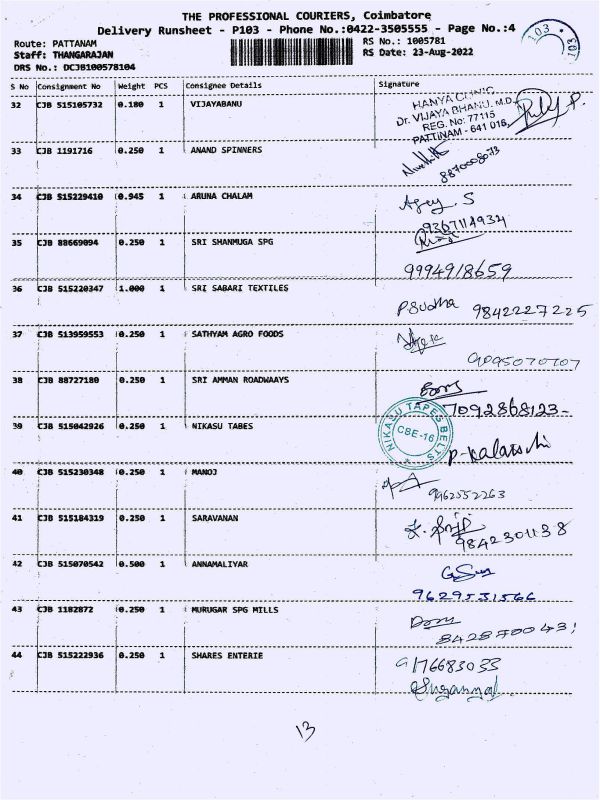 THE PROFESSIONAL COURIERS, Coimbatore
Delivery Runsheet - P103 - Phone No.:0422-3505555 - Page No.:4
Route: PATTANAM
RS No.: 1005781
Staff: THANGARAJAN
RS Date: 23-Aug-2022
DRS No.: DCJB100578104
103
103
S No Consignment No Weight PCS Consignee Details Signature
32 CJB 515105732 0.180 1 VIJAYABANU
HANYA CLINIC
Dr. VIJAYA BHANU. M.D.
REG. No: 77115
PATTINAM - 641 016.
33 CJB 1191716 0.250 1 ANAND SPINNERS
8870008073
34 CJB 515229410 0.945 1 ARUNA CHALAM
S
9367114934
35 CJB 88669094 0.250 1 SRI SHANMUGA SPG
9994918659
36 CJB 515220347 1.000 1 SRI SABARI TEXTILES
P Sudha 9842227225
37 CJB 513959553 0.250 1 SATHYAM AGRO FOODS
9095070707
38 CJB 88727180 0.250 1 SRI AMMAN ROADWAAYS
7092868123-
39 CJB 515042926 0.250 1 NIKASU TABES
NIKASU TAPES BELTS
CBE-16
40 CJB 515230348 0.250 1 MANOJ
9962552263
41 CJB 515184319 0.250 1 SARAVANAN
9842301138
42 CJB 515070542 0.500 1 ANNAMALIYAR
9629531566
43 CJB 1182872 0.250 1 MURUGAR SPG MILLS
44 CJB 515222936 0.250 1 SHARES ENTERIE
9176683033
13